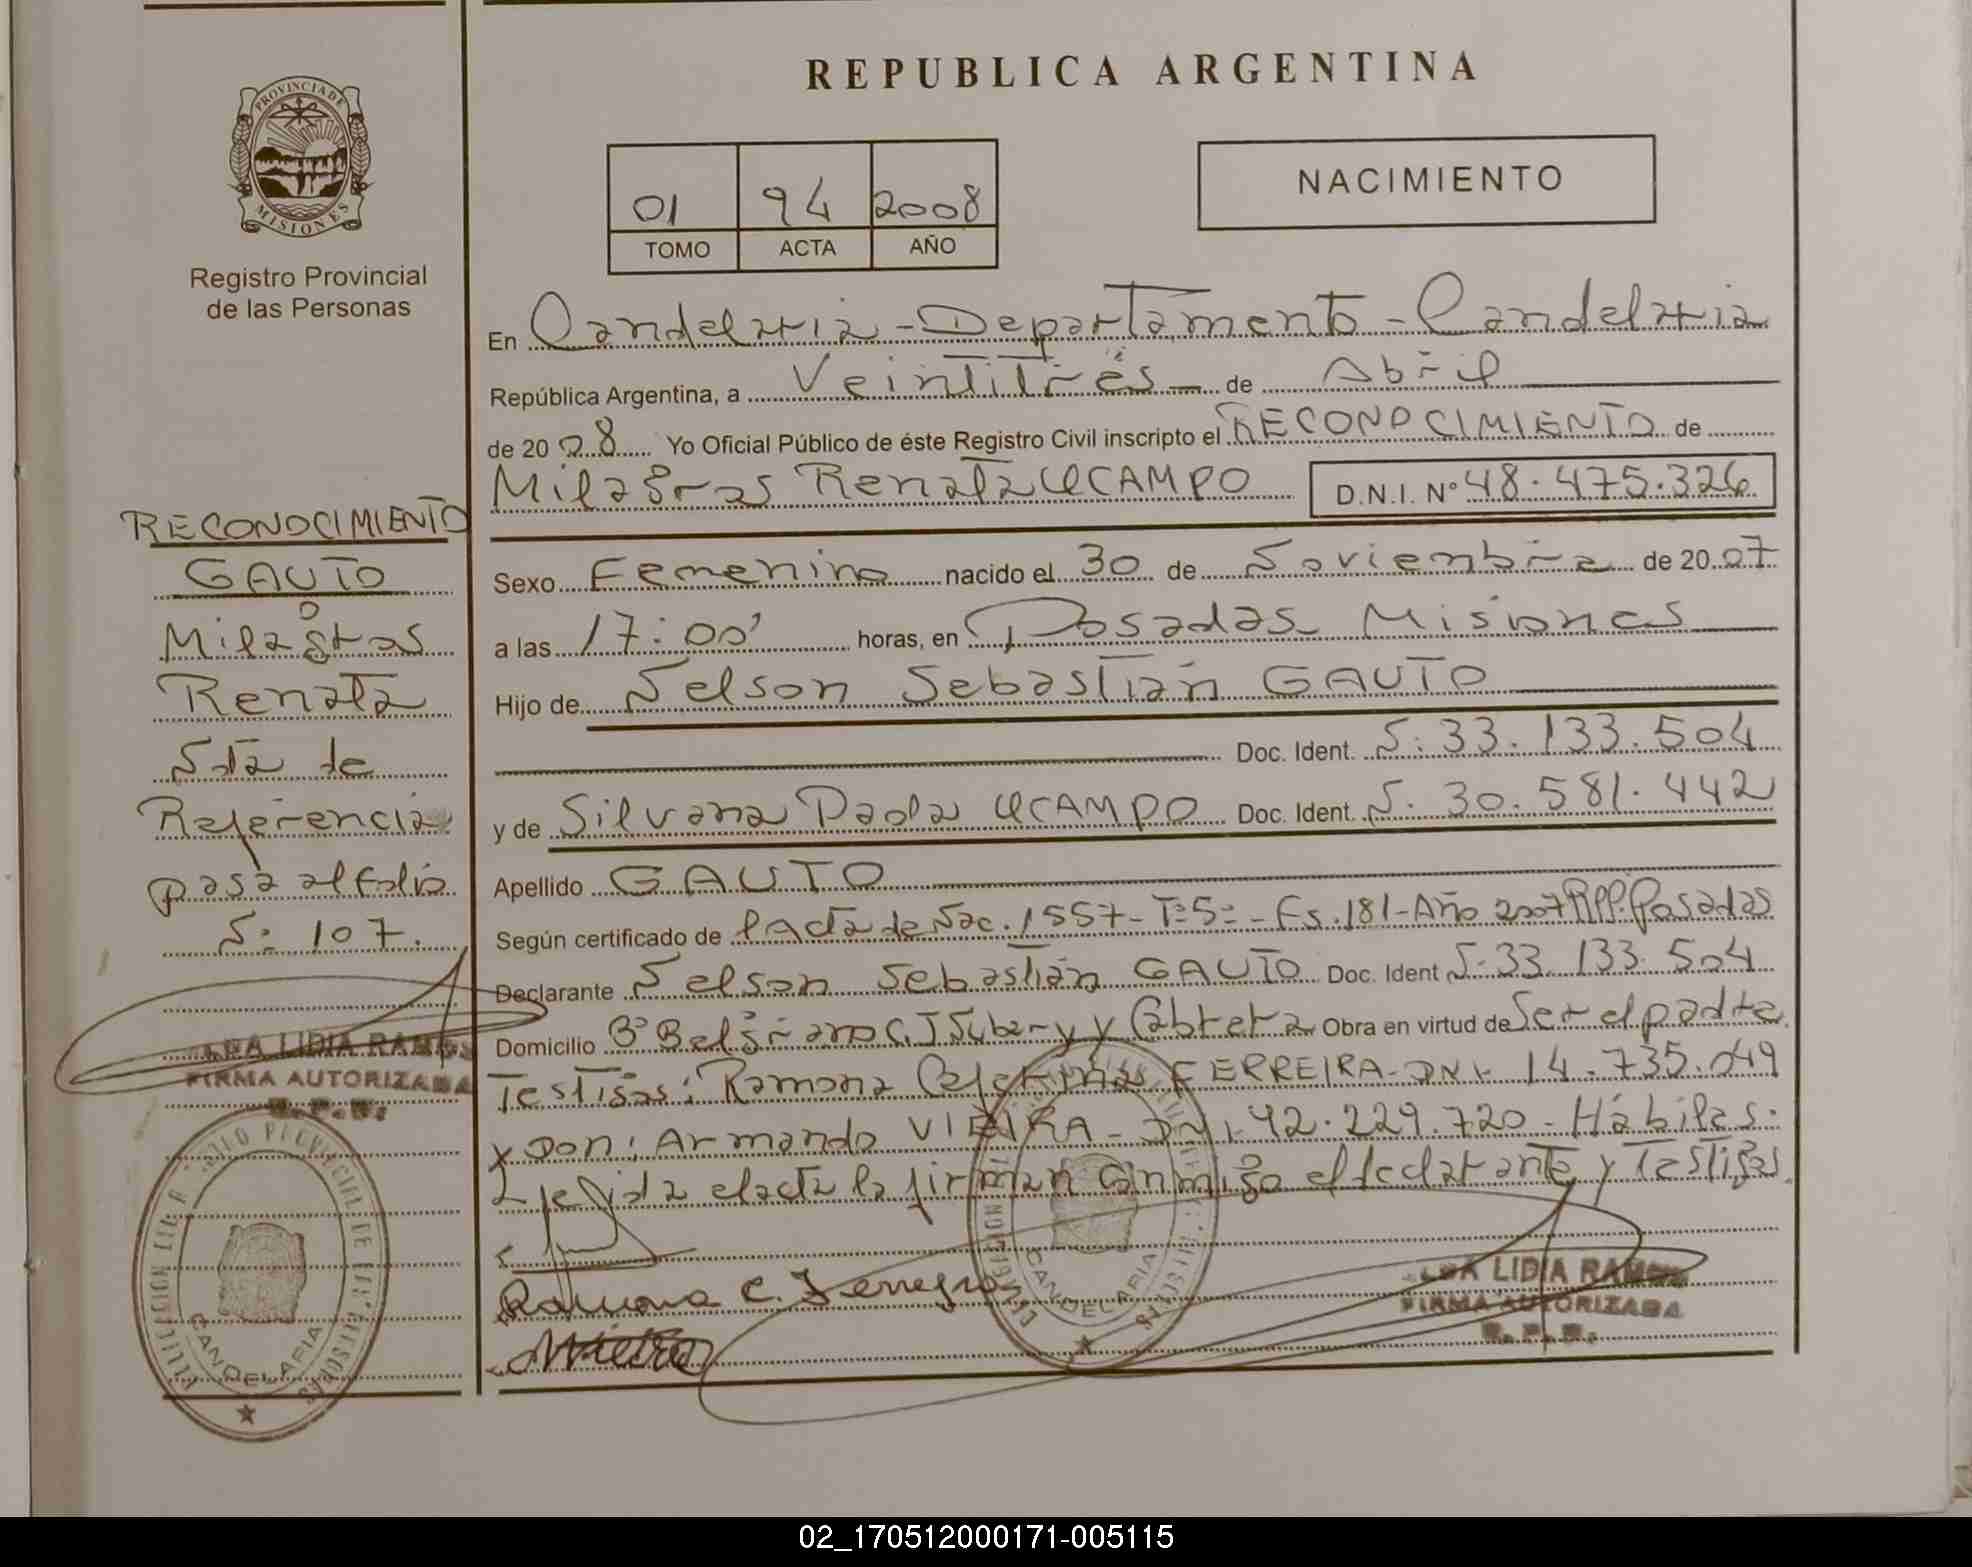 REPUBLICA ARGENTINA
PROVINCIA DE
MISIONES
Registro Provincial
de las Personas
01 94 2008
TOMO ACTA AÑO
NACIMIENTO
En Candelaria - Departamento - Candelaria
República Argentina, a Veintitrés de Abril
de 2008 Yo Oficial Público de éste Registro Civil inscripto el RECONOCIMIENTO de
Milagros Renata OCAMPO D.N.I. Nº 48.475.326
Sexo Femenino nacido el 30 de Noviembre de 2007
a las 17:00' horas, en Posadas Misiones
Hijo de Nelson Sebastián GAUTO
Doc. Ident. N: 33.133.504
y de Silvana Paola OCAMPO Doc. Ident. N. 30.581.442
Apellido GAUTO
Según certificado de Acta de Nac. 1557 - Tº 5º - Fs. 181 - Año 2007 RPP. Posadas
Declarante Nelson Sebastián GAUTO Doc. Ident N. 33.133.504
Domicilio Bº Belgrano y Cabrera Obra en virtud de Ser el padre
Testigos: Ramona FERREIRA - DNI. 14.735.049
y Don: Armando VIEIRA - DNI. 42.229.720 - Hábiles.
Leída el acta la firman conmigo el declarante y Testigos.
Ramona C. Ferreyra
LIDIA RAMOS
FIRMA AUTORIZADA
R. P. P.
RECONOCIMIENTO
GAUTO
Milagros
Renata
Nota de
Referencia
pasa al folio
N: 107.
LIDIA RAMOS
FIRMA AUTORIZADA
R. P. P.
CANDELARIA
CANDELARIA
02_170512000171-005115